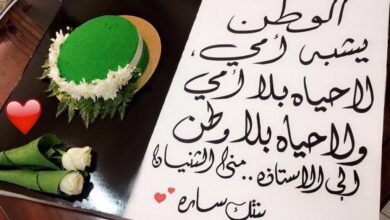 الوطن
يشبه أمي،
لا حياه بلا أمي
ولا حياه بلا وطن
إلى الاستاذه .. منى الثنيان
بنتك ساره